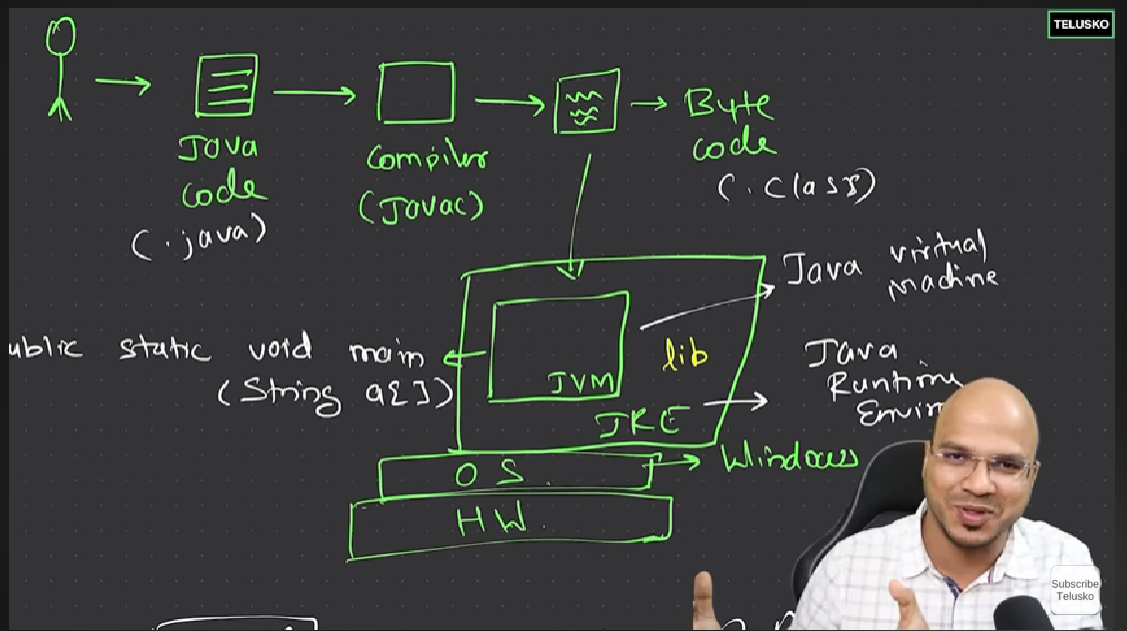 TELUSKO
Java
code
(.java)
Compiler
(Javac)
Byte
code
(.class)
Java virtual
machine
ublic static void main
(String a[])
JVM
lib
JRE
Java
Runtime
Envir
OS.
HW.
Windows
Subscribe
Telusko